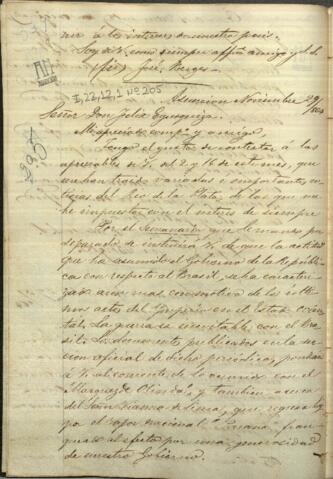 nir a los intereses de nuestro pais.
Soy de V. como siempre affmo amigo y S.S.
(fir) José Berges
I,22,12,1 Nº 205
Asuncion Noviembre 29/864
Señor Don Felix Egusquiza.
Mi apreciado compº y amigo.
Tengo el gusto de contestar a las
apreciables de V. del 2 y 16 de este mes, que
me han traido variadas e importantes
noticias del Rio de la Plata, de las que me
he impuesto con el interés de siempre
Por el Semanario que le mando po-
drá
de que la actitud
que ha asumido el Gobierno de la Repúbli-
ca con respecto al Brasil, se ha caracteri-
zado aun mas con motivo de los últi-
mos actos del Imperio en el Estado Orien-
tal. La guerra es inevitable con el Bra-
sil. Los documentos publicados en la sec-
cion oficial de dicho periódico, pondrán
a V. al corriente de lo ocurrido con el
Marquez de Olinda, y tambien acerca
del Señor Vianna de Lima, que regresa ba-
jo el vapor nacional "Paraná" fran-
queado al efecto por una generosidad
de nuestro Gobierno.